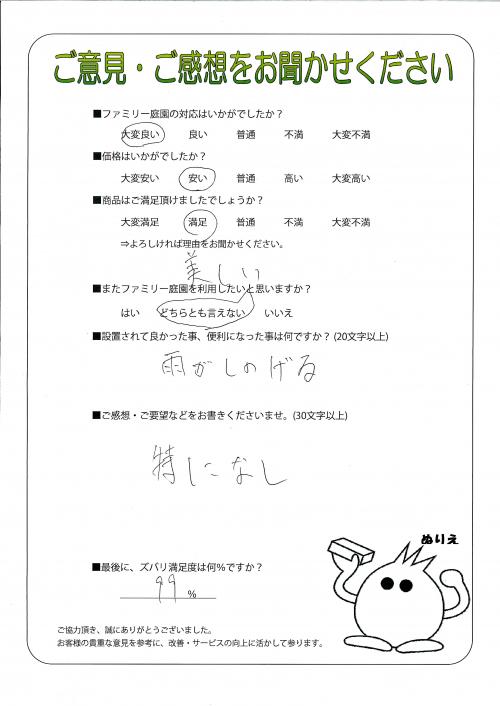 ご意見・ご感想をお聞かせください
■ファミリー庭園の対応はいかがでしたか？
大変良い 良い 普通 不満 大変不満
■価格はいかがでしたか？
大変安い 安い 普通 高い 大変高い
■商品はご満足頂けましたでしょうか？
大変満足 満足 普通 不満 大変不満
⇒よろしければ理由をお聞かせください。
美しい
■またファミリー庭園を利用したいと思いますか？
はい どちらとも言えない いいえ
■設置されて良かった事、便利になった事は何ですか？(20文字以上)
雨がしのげる
■ご感想・ご要望などをお書きくださいませ。(30文字以上)
特になし
ぬりえ
■最後に、ズバリ満足度は何％ですか？
99 %
ご協力頂き、誠にありがとうございました。
お客様の貴重な意見を参考に、改善・サービスの向上に活かして参ります。